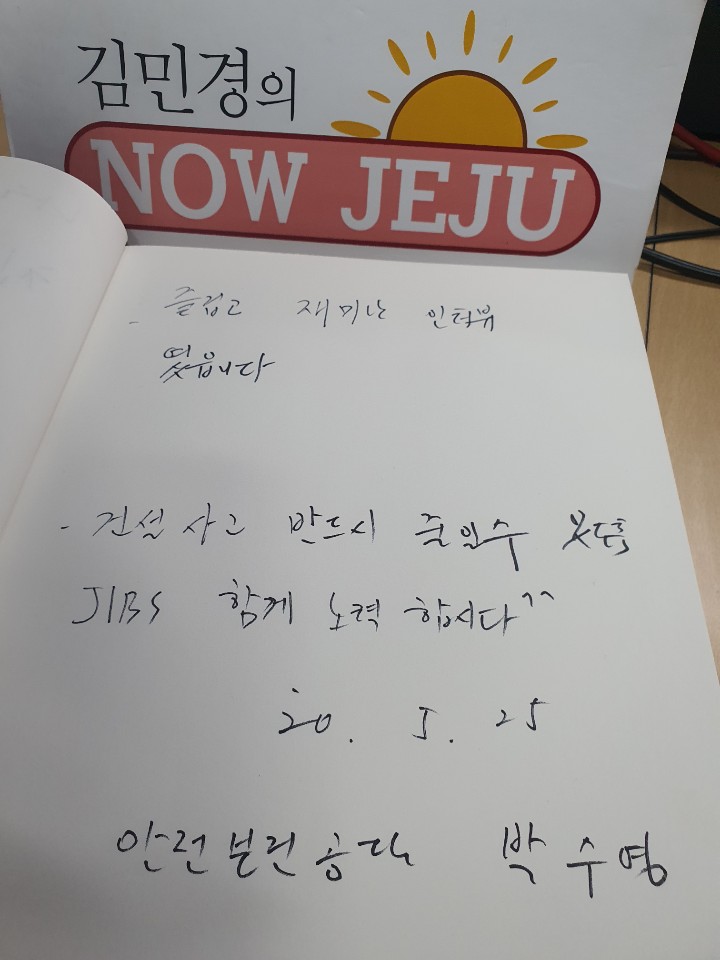 김민경의
NOW JEJU
- 즐겁고 재미난 인터뷰
였읍니다
- 건설사고 반드시 줄일수
JIBS 함께 노력 합시다^^
20. 5. 25
안전보건공단 박수영